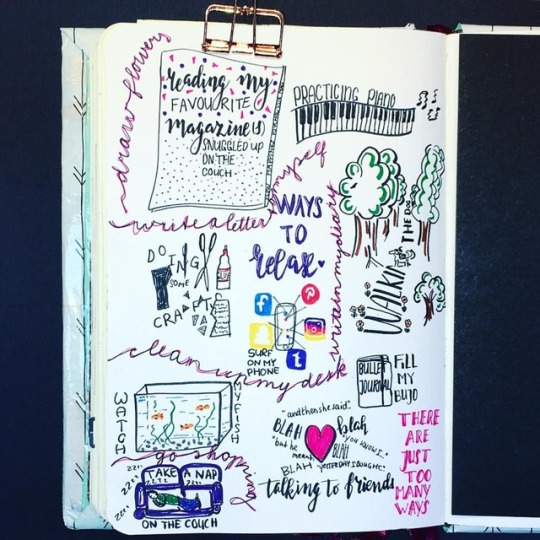 draw flowers
reading my
FAVOURITE
magazine(s)
SNUGGLED UP
ON THE
COUCH
PRACTICING PIANO
write a letter to myself
WAYS
TO
relax
write in my diary
WALKING
THE DOG
DOING
SOME
CRAFTS
f
t
SURF
ON MY
PHONE
clean up my desk
BULLET
JOURNAL
FILL
MY
BUJO
WATCH
MY FISH
"and then she said"
BLAH
blah
"but he
meant"
"YOU KNOW I"
BLAH
BLAH
"YESTERDAY I BOUGHT"
talking to friends
go shopping
TAKE A NAP
zzzz
zzzz
ON THE COUCH
THERE
ARE
JUST
TOO
MANY
WAYS